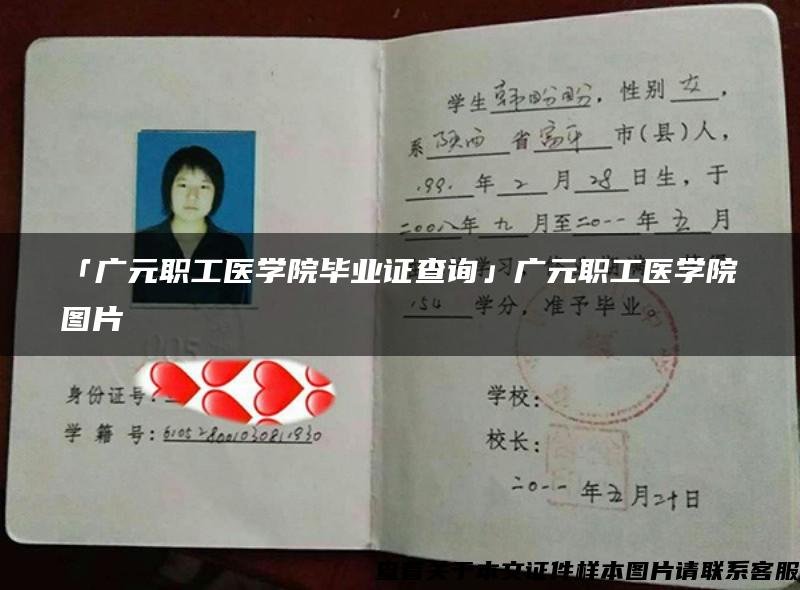 学生韩盼盼，性别女，
系陕西省富平市(县)人，
1991年2月28日生，于
二00八年九月至二0一一年五月
「广元职工医学院毕业证查询」广元职工医学院
图片
学习，
154学分，准予毕业。
身份证号：
学籍号：610528001030811930
学校：
校长：
二0一一年五月二十日
查看关于本文证件样本图片请联系客服